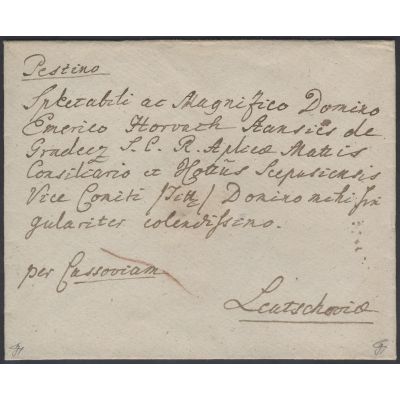 Pestino
Spectabili ac Magnifico Domino
Emerico Horvath Stansics de
Gradecz S. C. R. Aplicæ Mattis
Consiliario et Hottüs Scepusiensis
Vice Comiti /Titz/ Domino mihi sin
gulariter colendissimo.
per Cassoviam
Leutschoviæ